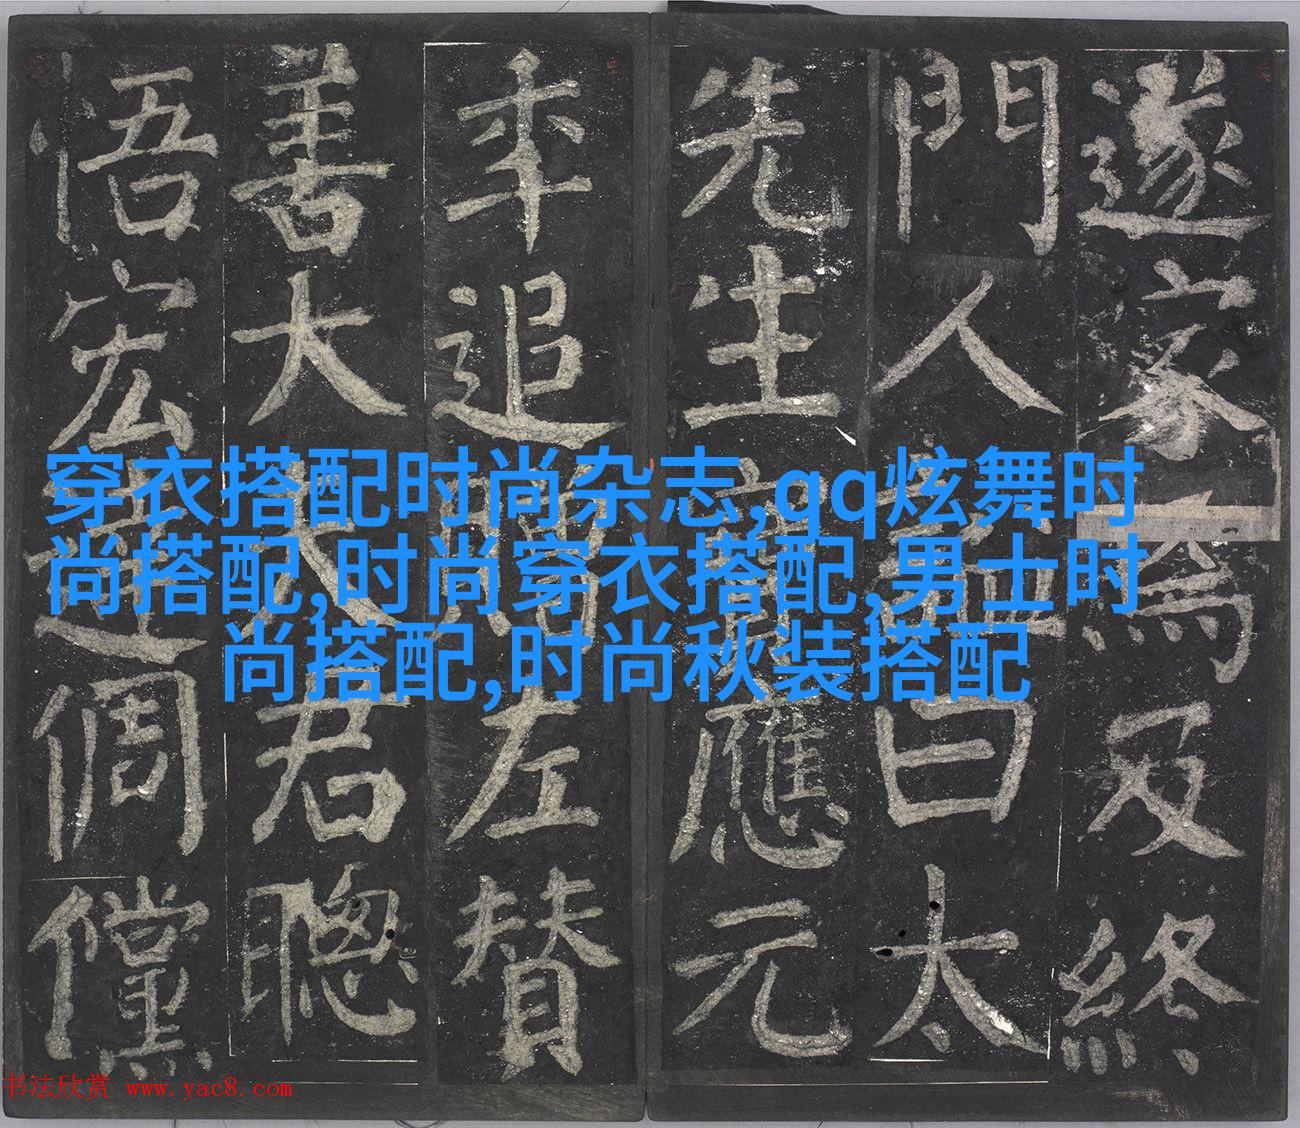 遂家焉及終
門人謚曰太
先生寶應元
年追贈左贊
善大夫君聰
悟宏達倜儻
穿衣搭配时尚杂志,qq炫舞时
尚搭配,时尚穿衣搭配,男士时
尚搭配,时尚秋装搭配
书法欣赏 www.yac8.com